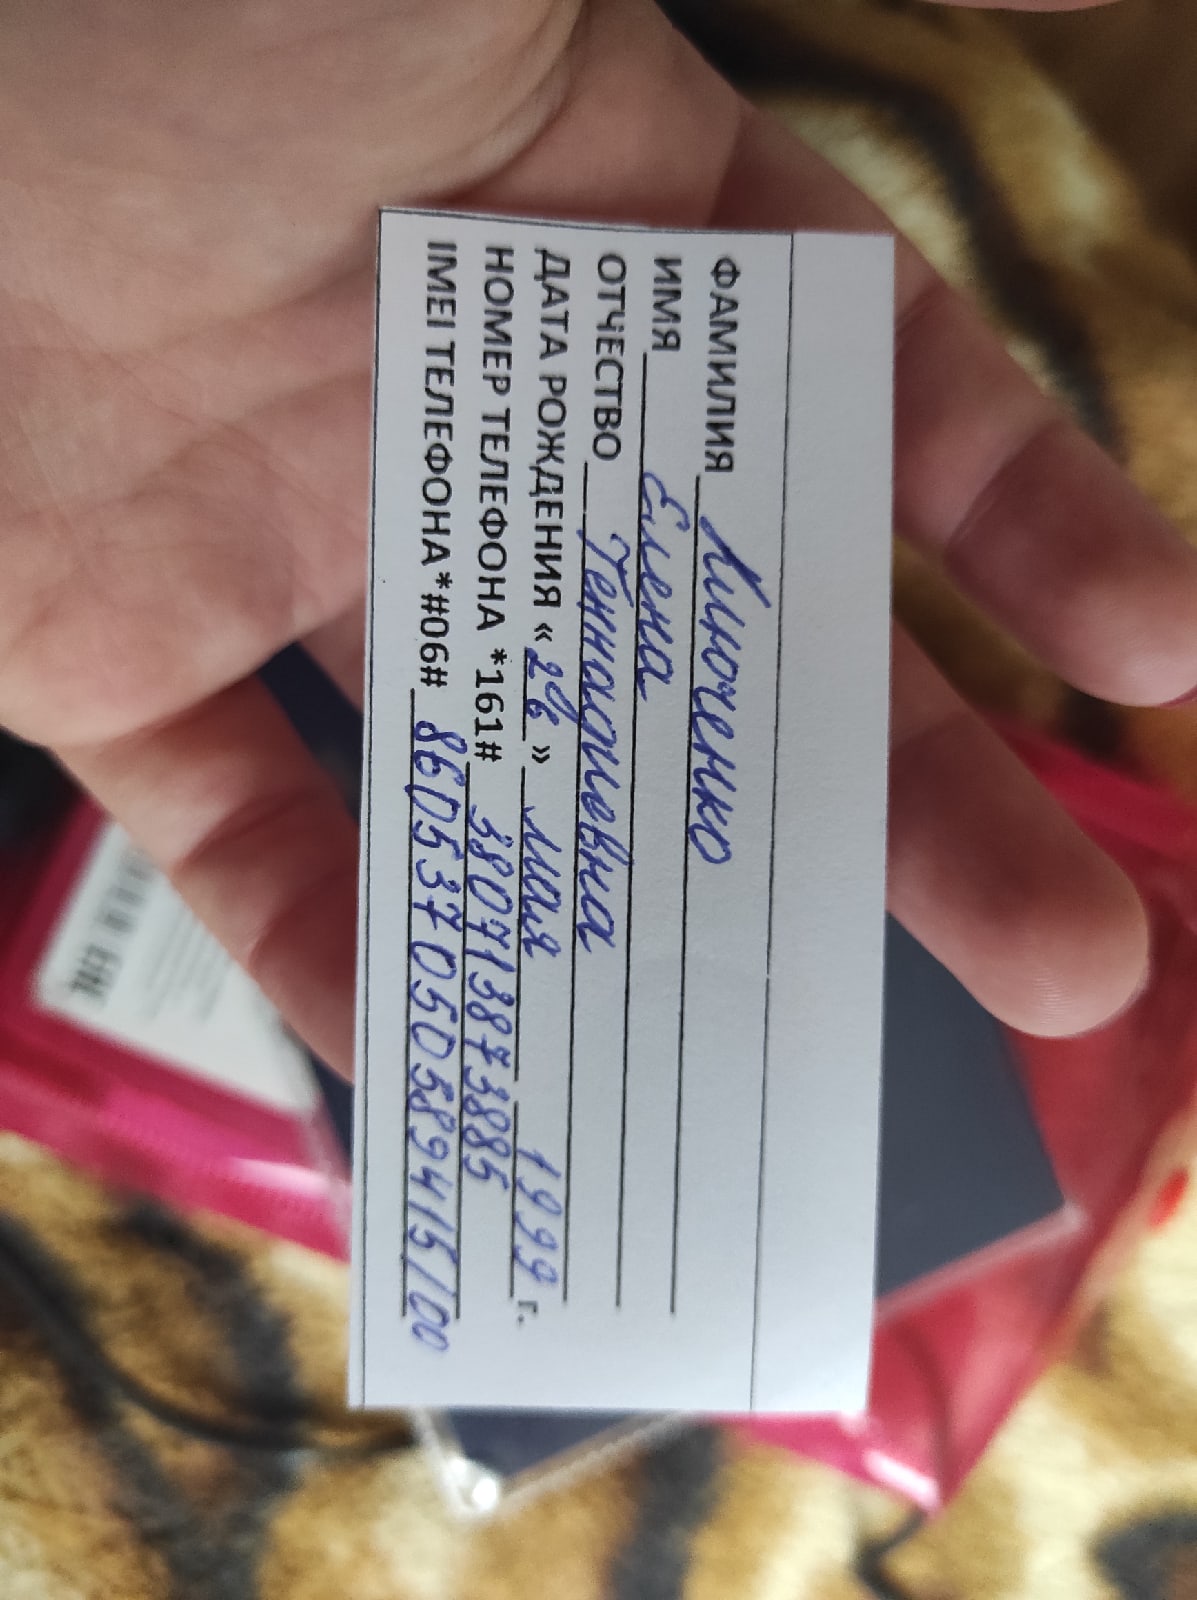 ФАМИЛИЯ Ключенко
ИМЯ Елена
ОТЧЕСТВО Геннадиевна
ДАТА РОЖДЕНИЯ «26» мая 1999 г.
НОМЕР ТЕЛЕФОНА *161# 380713873885
IMEI ТЕЛЕФОНА*#06# 860537050589415/00
EAC